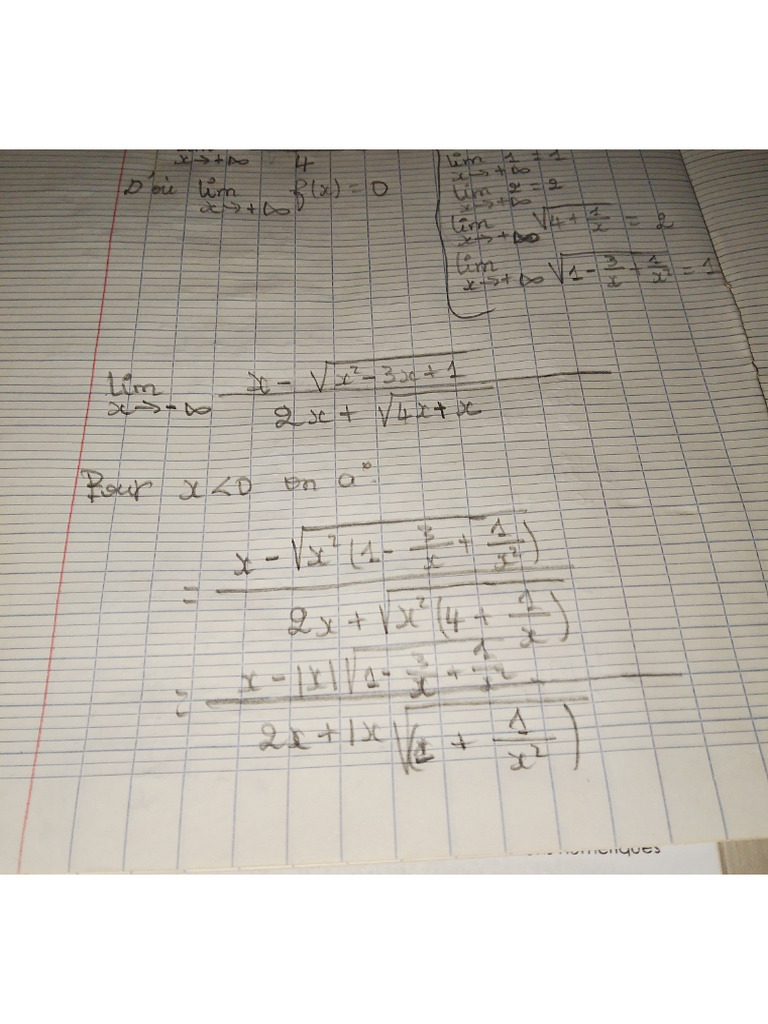 x→+∞ 4
D'où lim x→+∞ f(x) = 0
lim x→+∞ 1 = 1
lim x→+∞ 2 = 2
lim x→+∞ √(4+1/x) = 2
lim x→+∞ √(1-3/x+1/x²) = 1
lim x→-∞ (x - √(x²-3x+1)) / (2x + √(4x+x))
Pour x<0 on a:
= (x - √(x²(1 - 3/x + 1/x²))) / (2x + √(x²(4 + 1/x)))
= (x - |x|√(1 - 3/x + 1/x²)) / (2x + |x √(1 + 1/x²))
numériques